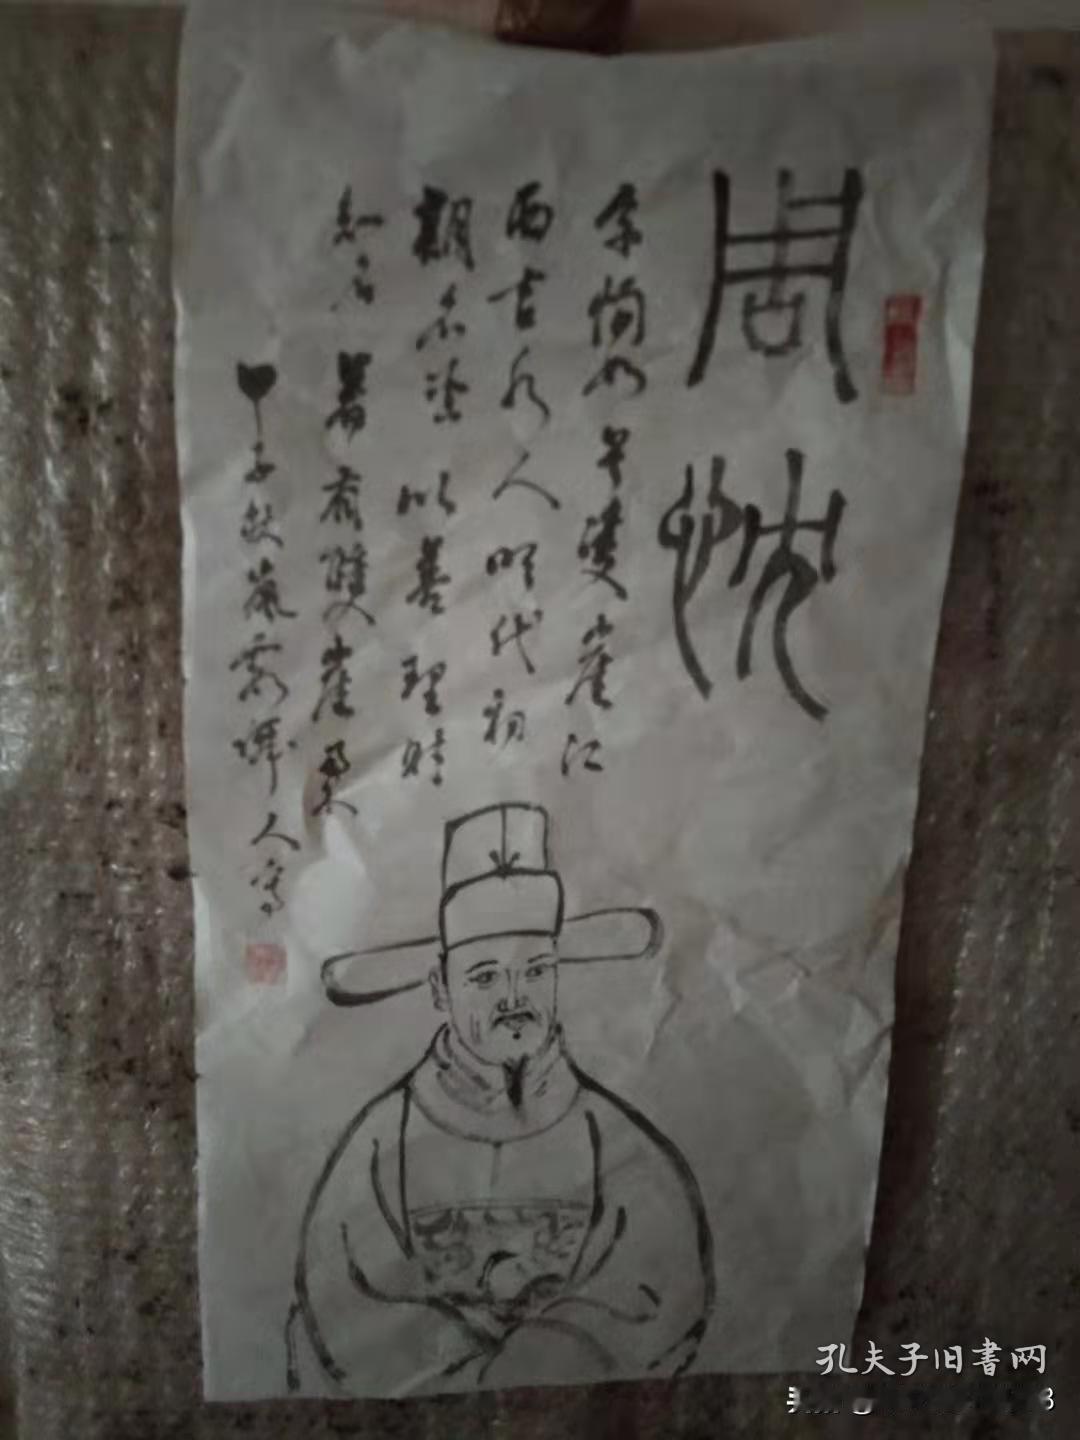 周忱
字恂如号双崖江
西吉水人 明代初
期名 以善理财
知名 著有双崖集
甲子 人写
孔夫子旧書网